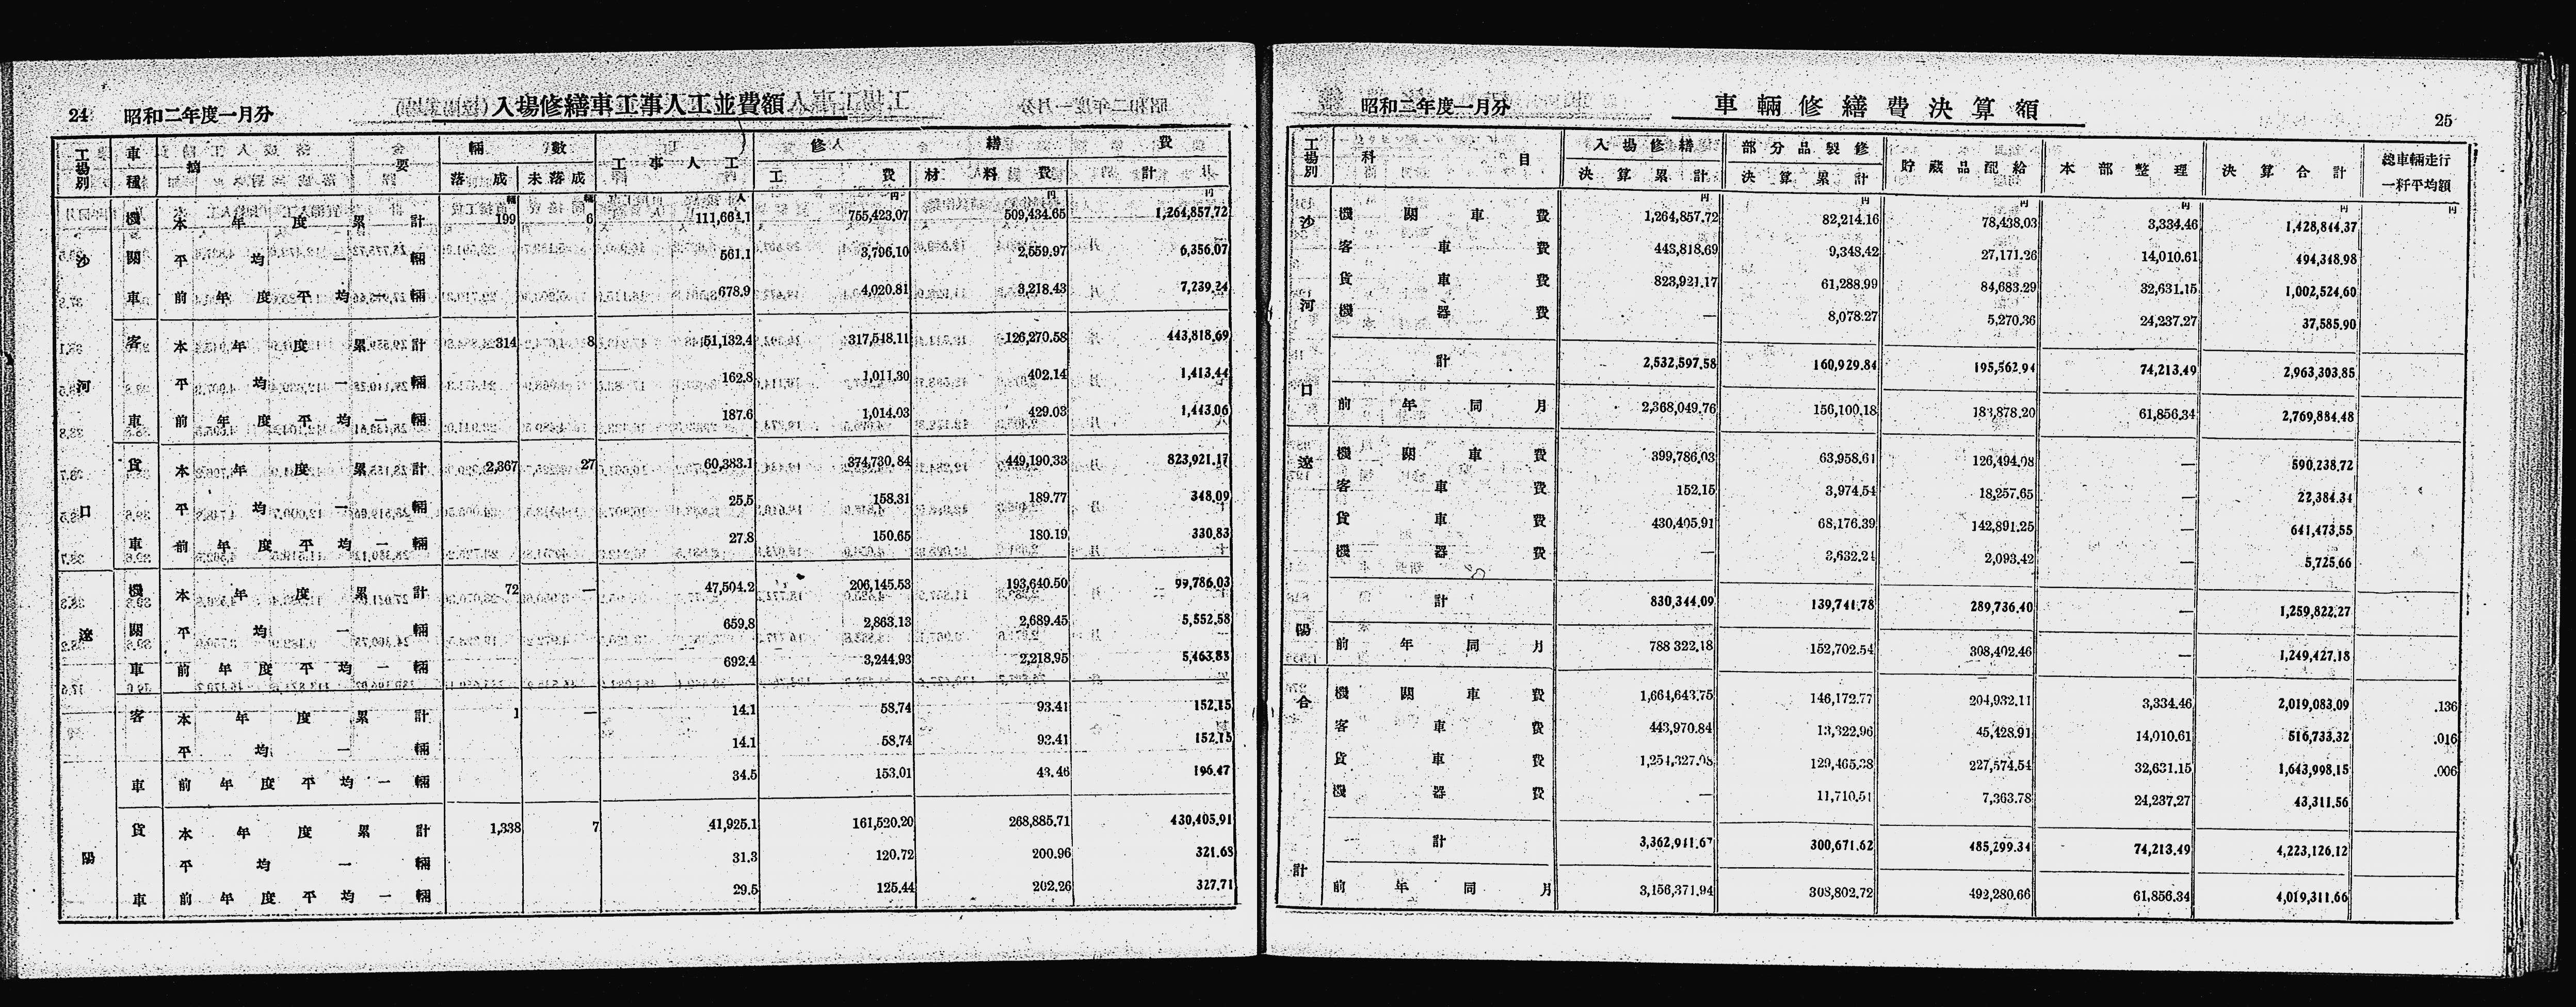 24 昭和二年度一月分 入場修繕車工事人工並費額
工場別 車種 摘要 輛數 工事人工 修繕費
落成 未落成 工費 材料費 計
輛 輛 人 円 円 円
沙河口 機關車 本年度累計 199 6 111,664.1 755,423.07 509,434.65 1,264,857.72
平均一輛 561.1 3,796.10 2,559.97 6,356.07
前年度平均一輛 678.9 4,020.81 3,218.43 7,239.24
客車 本年度累計 314 8 51,132.4 317,548.11 126,270.58 443,818.69
平均一輛 162.8 1,011.30 402.14 1,413.44
前年度平均一輛 187.6 1,014.03 429.03 1,443.06
貨車 本年度累計 2,367 27 60,383.1 374,730.84 449,190.33 823,921.17
平均一輛 25.5 158.31 189.77 348.09
前年度平均一輛 27.8 150.65 180.19 330.83
遼陽 機關車 本年度累計 72 — 47,504.2 206,145.53 193,640.50 99,786.03
平均一輛 659.8 2,863.13 2,689.45 5,552.58
前年度平均一輛 692.4 3,244.93 2,218.95 5,463.88
客車 本年度累計 1 — 14.1 58.74 93.41 152.15
平均一輛 14.1 58.74 93.41 152.15
前年度平均一輛 34.5 153.01 43.46 196.47
貨車 本年度累計 1,338 7 41,925.1 161,520.20 268,885.71 430,405.91
平均一輛 31.3 120.72 200.96 321.68
前年度平均一輛 29.5 125.44 202.26 327.71
昭和二年度一月分 車輛修繕費決算額 25
工場別 科目 入場修繕決算累計 部分品製修決算累計 貯藏品配給 本部整理 決算合計 總車輛走行一粁平均額
円 円 円 円 円 円
沙河口 機關車費 1,264,857.72 82,214.16 78,438.03 3,334.46 1,428,844.37
客車費 443,818.69 9,348.42 27,171.26 14,010.61 494,348.98
貨車費 823,921.17 61,288.99 84,683.29 32,631.15 1,002,524.60
機器費 — 8,078.27 5,270.36 24,237.27 37,585.90
計 2,532,597.58 160,929.84 195,562.94 74,213.49 2,963,303.85
前年同月 2,368,049.76 156,100.18 183,878.20 61,856.34 2,769,884.48
遼陽 機關車費 399,786.03 63,958.61 126,494.08 — 590,238.72
客車費 152.15 3,974.54 18,257.65 — 22,384.34
貨車費 430,405.91 68,176.39 142,891.25 — 641,473.55
機器費 — 3,632.24 2,093.42 — 5,725.66
計 830,344.09 139,741.78 289,736.40 — 1,259,822.27
前年同月 788 322.18 152,702.54 308,402.46 — 1,249,427.18
合計 機關車費 1,664,643.75 146,172.77 204,932.11 3,334.46 2,019,083.09 .136
客車費 443,970.84 13,322.96 45,428.91 14,010.61 516,733.32 .016
貨車費 1,254,327.08 129,465.38 227,574.54 32,631.15 1,643,998.15 .006
機器費 — 11,710.51 7,363.78 24,237.27 43,311.56
計 3,362,941.67 300,671.62 485,299.34 74,213.49 4,223,126.12
前年同月 3,156,371.94 308,802.72 492,280.66 61,856.34 4,019,311.66